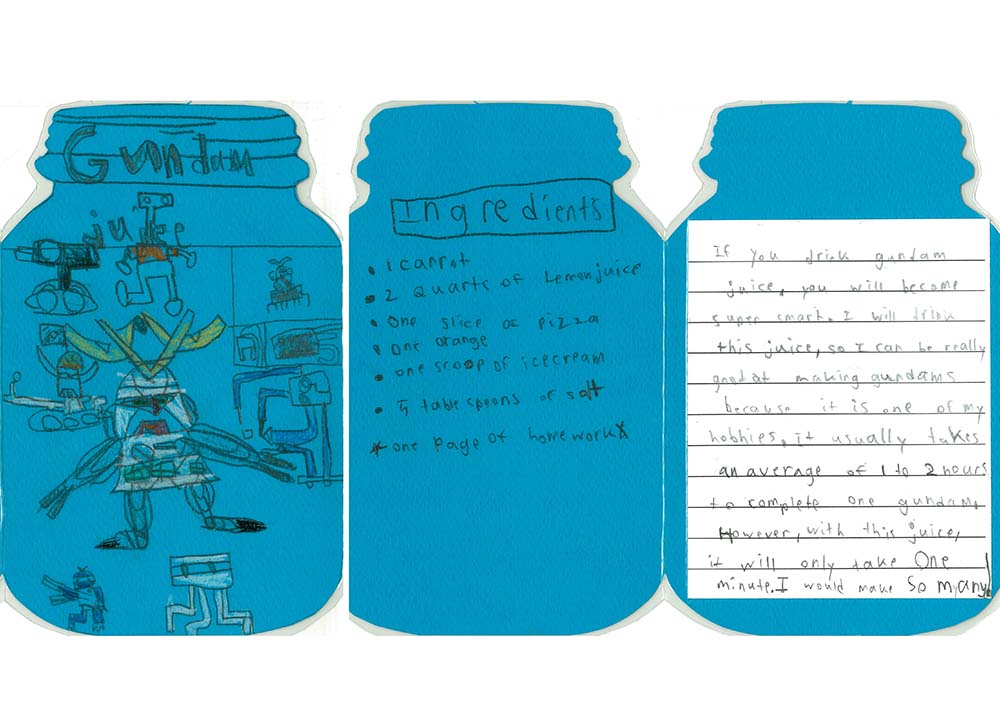 Gundam
juice
Ingredients
• 1 carrot
• 2 Quarts of Lemonjuice
• One slice of pizza
• One orange
• one scoop of icecream
• 5 table spoons of salt
* one page of homework *
If you drink gundam
juice, you will become
super smart. I will drink
this juice, so I can be really
good at making gundams
because it is one of my
hobbies. it usually takes
an average of 1 to 2 hours
to complete one gundam.
However, with this juice,
it will only take One
minute. I would make so many!